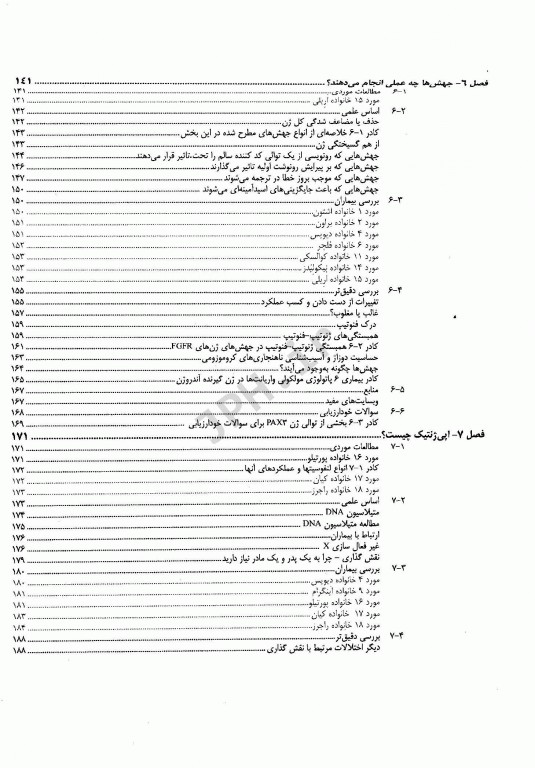 فصل ۶- جهش‌ها چه عملی انجام می‌دهند؟ ۱۴۱
۶-۱ مطالعات موردی ۱۴۱
مورد ۱۵ خانواده اریلی ۱۴۱
۶-۲ اساس علمی ۱۴۲
حذف یا مضاعف شدگی کل ژن ۱۴۲
کادر ۱-۶ خلاصه‌ای از انواع جهش‌های مطرح شده در این بخش ۱۴۳
از هم گسیختگی ژن ۱۴۳
جهش‌هایی که رونویسی از یک توالی کد کننده سالم را تحت‌تاثیر قرار می‌دهند ۱۴۴
جهش‌هایی که بر پیرایش رونوشت اولیه تاثیر می‌گذارند ۱۴۶
جهش‌هایی که موجب بروز خطا در ترجمه می‌شوند ۱۴۷
جهش‌هایی که باعث جایگزینی‌های اسیدآمینه‌ای می‌شوند ۱۵۰
۶-۳ بررسی بیماران ۱۵۰
مورد ۱ خانواده اشتون ۱۵۰
مورد ۲ خانواده براون ۱۵۱
مورد ۴ خانواده دیویس ۱۵۱
مورد ۶ خانواده فلچر ۱۵۲
مورد ۱۱ خانواده کوالسکی ۱۵۳
مورد ۱۴ خانواده نیکولیدز ۱۵۳
مورد ۱۵ خانواده اریلی ۱۵۴
۶-۴ بررسی دقیق‌تر ۱۵۵
تغییرات از دست دادن و کسب عملکرد ۱۵۵
غالب یا مغلوب؟ ۱۵۷
درک فنوتیپ ۱۵۹
همبستگی‌های ژنوتیپ-فنوتیپ ۱۵۹
کادر ۲-۶ همبستگی ژنوتیپ-فنوتیپ در جهش‌های ژن‌های FGFR ۱۶۱
حساسیت دوزاژ و آسیب‌شناسی ناهنجاری‌های کروموزومی ۱۶۳
جهش‌ها چگونه به‌وجود می‌آیند؟ ۱۶۴
کادر بیماری ۶ پاتولوژی مولکولی واریانت‌ها در ژن گیرنده آندروژن ۱۶۵
۶-۵ منابع ۱۶۷
وبسایت‌های مفید ۱۶۷
۶-۶ سوالات خودارزیابی ۱۶۸
کادر ۳-۶ بخشی از توالی ژن PAX۳ برای سوالات خودارزیابی ۱۶۹
فصل ۷- اپی‌ژنتیک چیست؟ ۱۷۱
۷-۱ مطالعات موردی ۱۷۱
مورد ۱۶ خانواده پورتیلو ۱۷۱
کادر ۱-۷ انواع لنفوسیتها و عملکردهای آنها ۱۷۲
مورد ۱۷ خانواده کیان ۱۷۲
مورد ۱۸ خانواده راجرز ۱۷۳
۷-۲ اساس علمی ۱۷۳
متیلاسیون DNA ۱۷۴
مطالعه متیلاسیون DNA ۱۷۵
ارتباط با بیماران ۱۷۶
غیر فعال سازی X ۱۷۶
نقش گذاری - چرا به یک پدر و یک مادر نیاز دارید ۱۷۹
۷-۳ بررسی بیماران ۱۸۰
مورد ۴ خانواده دیویس ۱۸۰
مورد ۹ خانواده اینگرام ۱۸۱
مورد ۱۶ خانواده پورتیلو ۱۸۱
مورد ۱۷ خانواده کیان ۱۸۳
مورد ۱۸ خانواده راجرز ۱۸۴
۷-۴ بررسی دقیق‌تر ۱۸۸
دیگر اختلالات مرتبط با نقش گذاری ۱۸۸